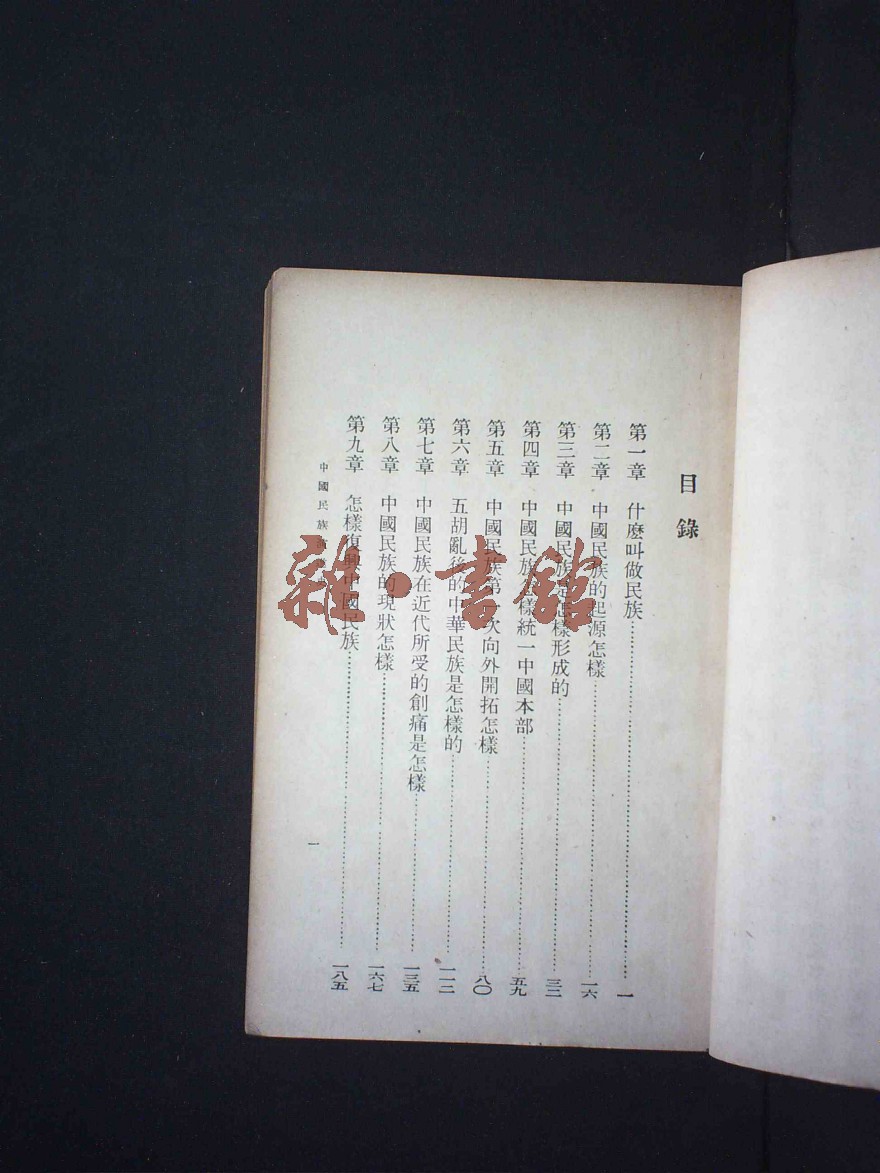 目錄
第一章 什麼叫做民族……一
第二章 中國民族的起源怎樣……一六
第三章 中國民族是怎樣形成的……三三
第四章 中國民族怎樣統一中國本部……五九
第五章 中國民族第一次向外開拓怎樣……八〇
第六章 五胡亂後的中華民族是怎樣的……一一二
第七章 中國民族在近代所受的創痛是怎樣……一三五
第八章 中國民族的現狀怎樣……一六七
第九章 怎樣復興中國民族……一八五
中國民族
一
雜·書館